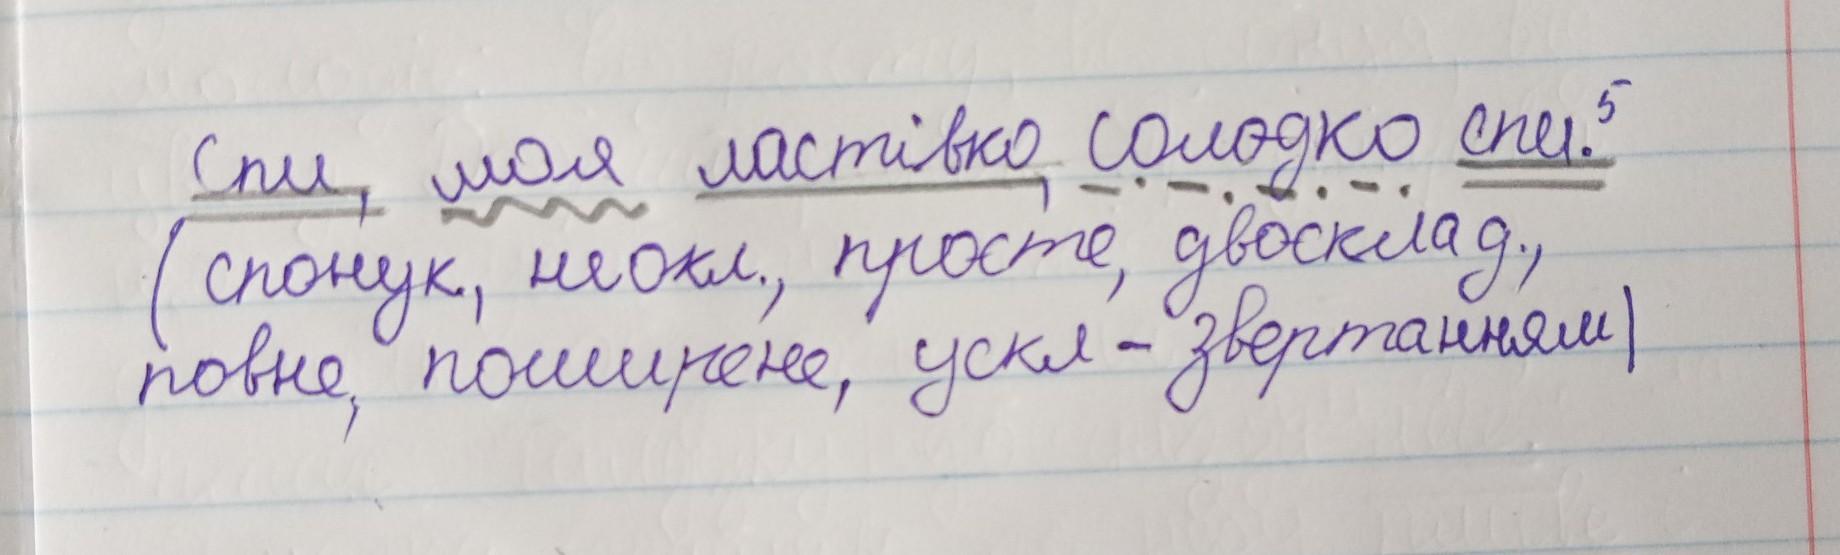 Спи, моя ластівко, солодко спи.⁵
(спонук., неокл., просте, двосклад.,
повне, поширене, ускл - звертанням)